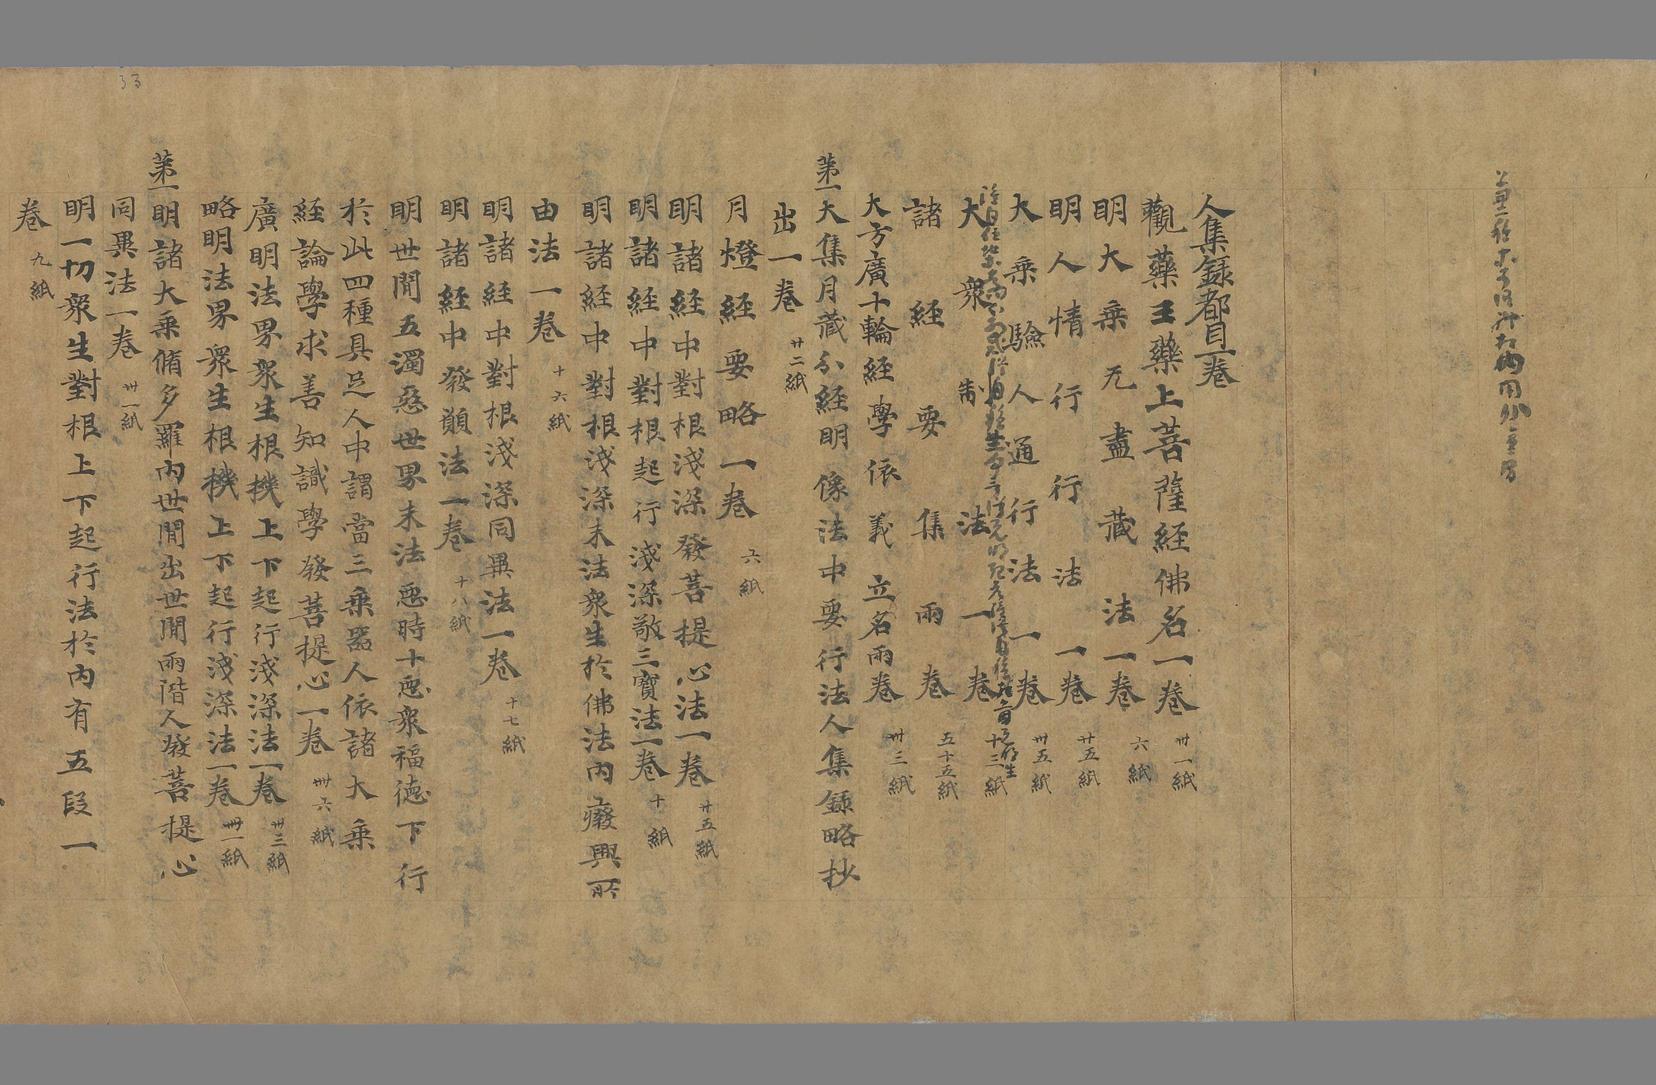 人集錄都目一卷
觀藥王藥上菩薩經佛名一卷 卅一紙
明大乘无盡藏法一卷 六紙
明人情行行法一卷 廿五紙
大乘驗人通行法一卷 卅五紙
大衆制法一卷 十三紙
諸經要集兩卷 五十五紙
大方廣十輪經學依義立名兩卷 卅三紙
第一大集月藏分經明像法中要行法人集錄略抄
出一卷 廿二紙
月燈經要略一卷 六紙
明諸經中對根淺深發菩提心法一卷 廿五紙
明諸經中對根起行淺深敬三寶法一卷 十紙
明諸經中對根淺深末法衆生於佛法內癈興所
由法一卷 十六紙
明諸經中對根淺深同異法一卷 十七紙
明諸經中發願法一卷 十八紙
明世間五濁惡世界末法惡時十惡衆福德下行
於此四種具足人中謂當三乘器人依諸大乘
經論學求善知識學發菩提心一卷 卅六紙
廣明法界衆生根機上下起行淺深法一卷 卌三紙
略明法界衆生根機上下起行淺深法一卷 卌一紙
第一明諸大乘脩多羅內世間出世間兩階人發菩提心
同異法一卷 卅一紙
明一切衆生對根上下起行法於內有五段一
卷 九紙
33